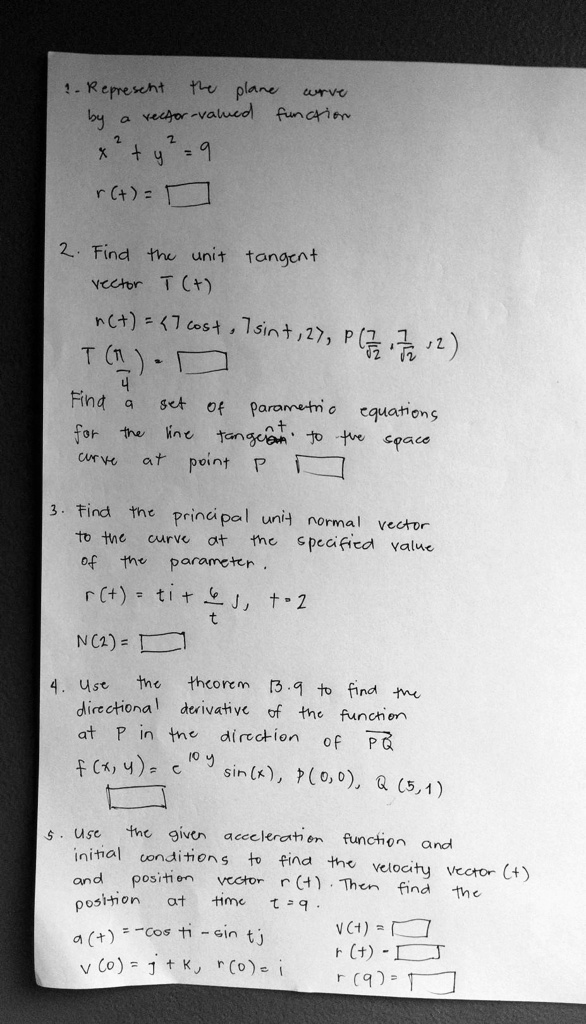 1- Represent the plane curve
by a vector-valued function
x² + y² = 9
r(t) =
2. Find the unit tangent
vector T(t)
r(t) = <7 cost, 7sint, 2>, P(7/√2, 7/√2, 2)
T(π/4) =
Find a set of parametric equations
for the line tangent to the space
curve at point P
3. Find the principal unit normal vector
to the curve at the specified value
of the parameter.
r(t) = ti + 6/t j, t=2
N(2) =
4. Use the theorem 13.9 to find the
directional derivative of the function
at P in the direction of PQ
f(x,y) = e^10y sin(x), P(0,0), Q (5,1)
5. Use the given acceleration function and
initial conditions to find the velocity vector (t)
and position vector r(t). Then find the
position at time t=9.
a(t) = -cos ti - sin tj
v(0) = j + k, r(0) = i
v(t) =
r(t) -
r(9) =